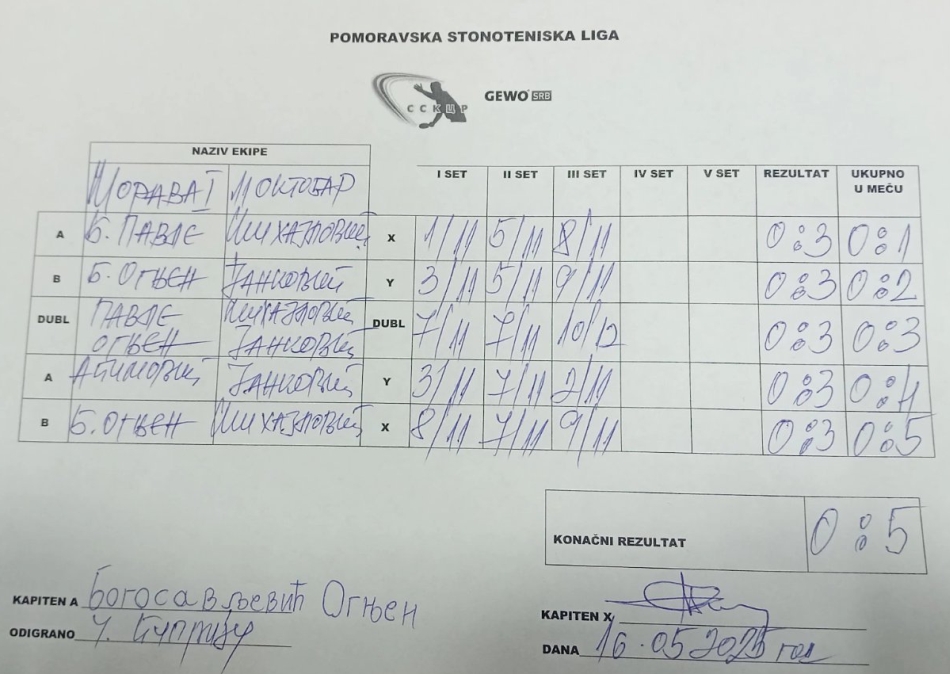 POMORAVSKA STONOTENISKA LIGA
ССКЦР GEWO SRB
NAZIV EKIPE
I SET II SET III SET IV SET V SET REZULTAT UKUPNO U MEČU
МОРАВА I МОКТОБАР
A Б. ПАВЛЕ МИХАЈЛОВИЋ X 1/11 5/11 8/11 0:3 0:1
B Б. ОГЊЕН ЈАНКОВИЋ Y 3/11 5/11 9/11 0:3 0:2
DUBL ПАВЛЕ ОГЊЕН МИХАЈЛОВИЋ ЈАНКОВИЋ DUBL 7/11 7/11 10/12 0:3 0:3
A ЈАНКОВИЋ Y 3/11 7/11 2/11 0:3 0:4
B Б. ОГЊЕН МИХАЈЛОВИЋ X 8/11 7/11 9/11 0:3 0:5
KONAČNI REZULTAT 0:5
KAPITEN A Богосављевић Огњен
KAPITEN X
ODIGRANO
DANA 16.05.2025 год